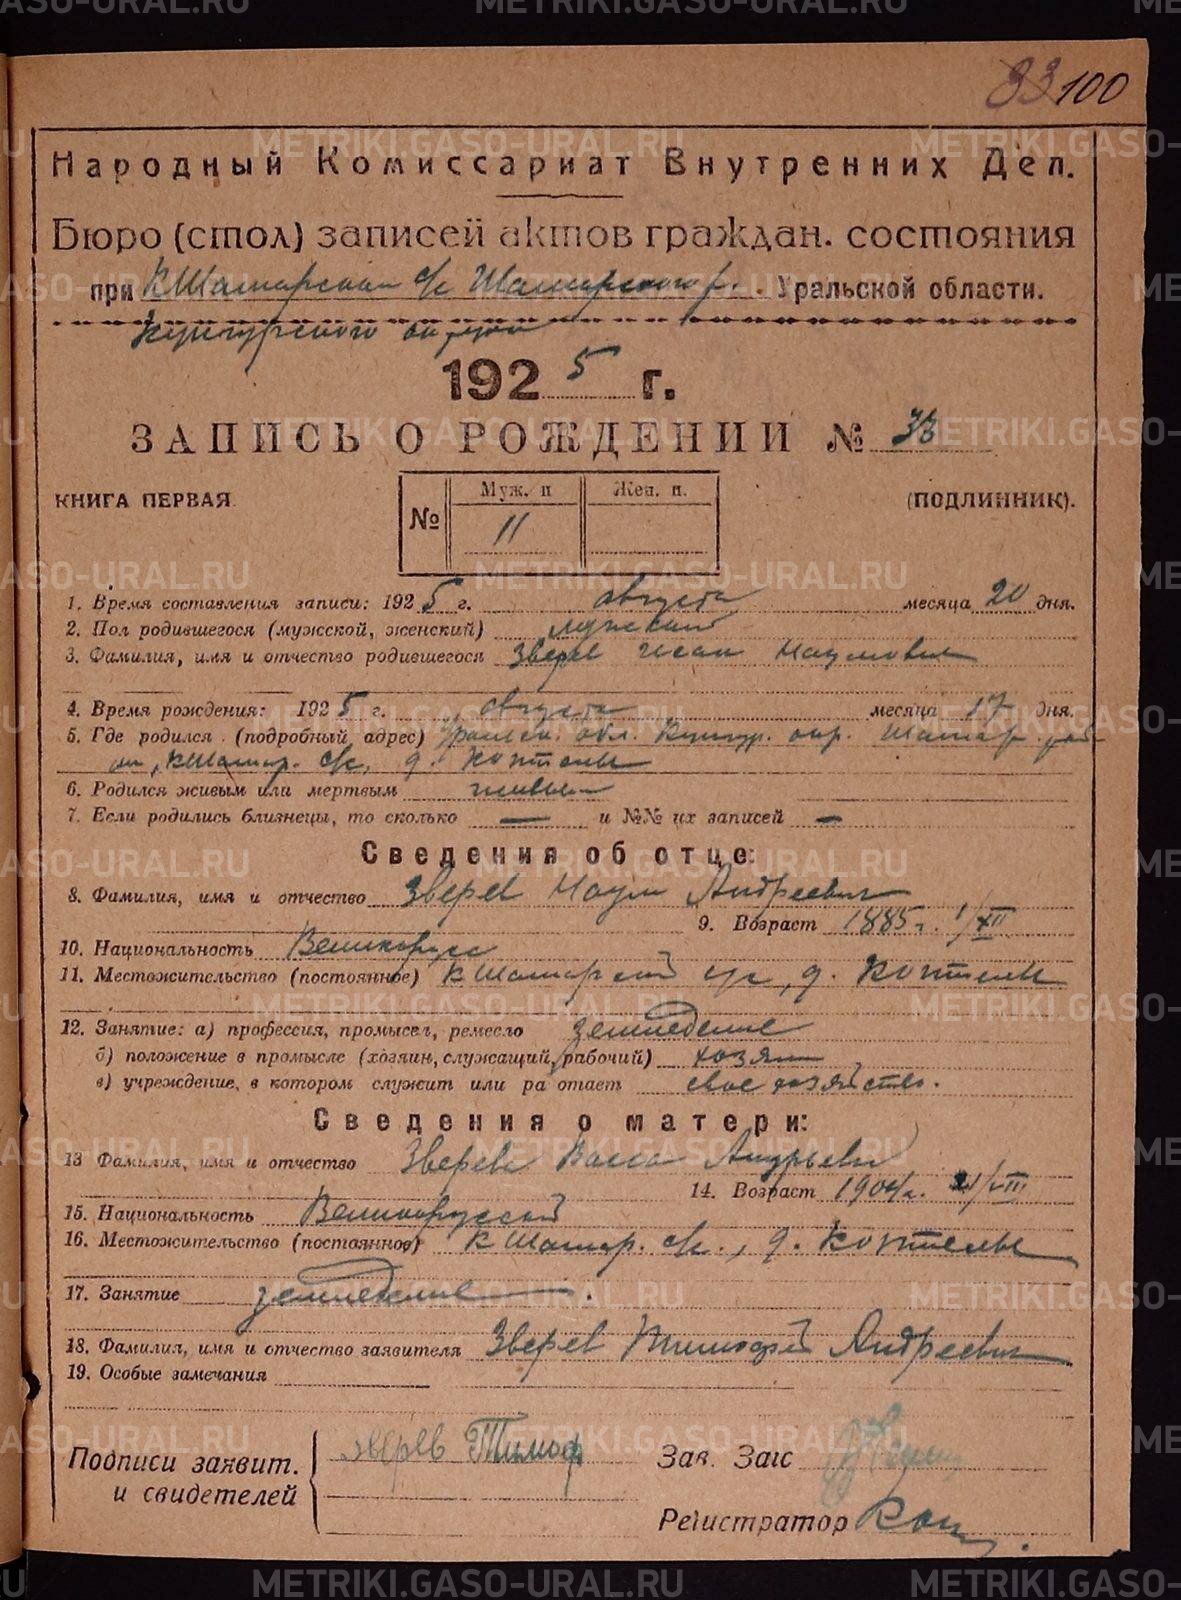 33 100
Народный Комиссариат Внутренних Дел.
Бюро (стол) записей актов граждан. состояния
при КШамарском с/с Шамарского р. Уральской области.
Кунгурского округа
1925 г.
ЗАПИСЬ О РОЖДЕНИИ № 33
КНИГА ПЕРВАЯ.
№ Муж. п Жен. п.
11
(ПОДЛИННИК).
1. Время составления записи: 1925 г. августа месяца 20 дня.
2. Пол родившегося (мужской, женский) мужской
3. Фамилия, имя и отчество родившегося Зверев Иван Наумович
4. Время рождения: 1925 г. августа месяца 17 дня.
5. Где родился (подробный адрес) Уральск. обл. Кунгур. окр. Шамар. рай
он, КШамар. с/с, д. Коптелы
6. Родился живым или мертвым живым
7. Если родились близнецы, то сколько — и №№ их записей —
Сведения об отце:
8. Фамилия, имя и отчество Зверев Наум Андреевич
9. Возраст 1885 г. 1/XII
10. Национальность Великорусс
11. Местожительство (постоянное) КШамарский с/с, д. Коптелы
12. Занятие: а) профессия, промысел, ремесло земледелие
б) положение в промысле (хозяин, служащий, рабочий) хозяин
в) учреждение, в котором служит или ра отает свое хозяйство.
Сведения о матери:
13 Фамилия, имя и отчество Зверева Васса Андреевн
14. Возраст 1904 г. 21/VIII
15. Национальность Великорусской
16. Местожительство (постоянное) КШамар. с/с., д. Коптелы
17. Занятие земледелие.
18. Фамилия, имя и отчество заявителя Зверев Тимофей Андреевич
19. Особые замечания
Подписи заявит. и свидетелей
Зверев Тимоф
Зав. Загс
Регистратор
METRIKI.GASO-URAL.RU